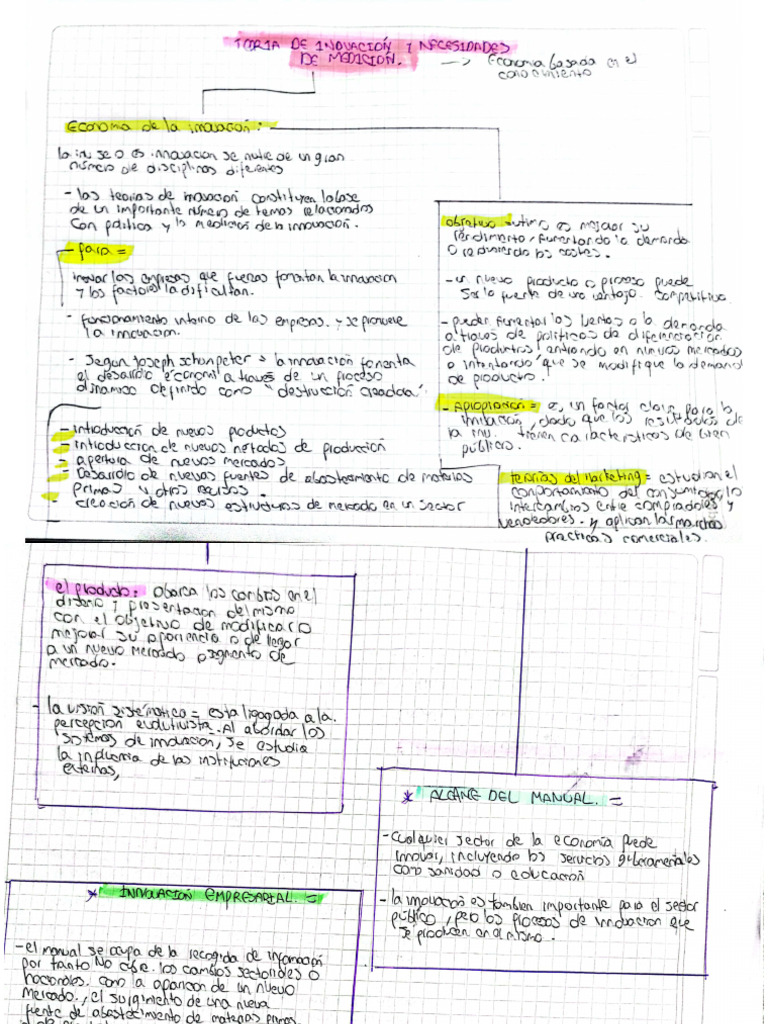 TEORIA DE INOVACIÓN Y NECESIDADES
DE MEDICIÓN.
→ Economía basada en el
conocimiento
Economía de la innovación:
la innovación se nutre de un gran
número de disciplinas diferentes
- las teorías de innovación constituyen la base
de un importante número de temas relacionados
con política y la medición de la innovación.
- Para =
inovar las empresas que fuerzas fomentan la innovacion
y los factores la dificultan.
- funcionamiento interno de las empresas. y se promueve
la innovacion.
- Segun Joseph schumpeter → la innovación fomenta
el desarrollo económi a través de un proceso
dinamico definido como "destrucción creadora".
- introducción de nuevos productos
- introduccion de nuevos métodos de producción
- apertura de nuevos mercados
- Desarrollo de nuevas fuentes de abastecimiento de materias
primas y otros recursos.
- creación de nuevas estructuras de mercado en un sector
objetivo ultimo es mejorar su
rendimiento, aumentando la demanda
o reduciendo los costes.
- un nuevo producto o proceso puede
ser la fuente de una ventaja competitiva.
- pueden aumentar las ventas o la demanda
a través de políticas de diferenciación
de productos, entrando en nuevos mercados
o intentando que se modifique la demand
de producto.
- Apropiación = es un factor clave para la
inovación, dado que los resultados de
la inv. tienen características de bien
público.
teorías del marketing = estudian el
comportamiento del consumidor, los
intercambios entre compradores y
vendedores. y aplican las
practicas comerciales.
el producto: abarca los cambios en el
diseño y presentacion del mismo
con el objetivo de modificar o
mejorar su apariencia o de llegar
a un nuevo mercado o segmento de
mercado.
- la visión sistemática = esta ligagada a la
percepción evolutivista. Al abordar los
sistemas de innovacion, se estudia
la influencia de las instituciones
externas,
* ALCANE DEL MANUAL. =
- cualquier sector de la economía puede
innovar, incluyendo los servicios gubernamentales
como sanidad o educación
- la innovación es tambien importante para el sector
público, pero los procesos de innovacion que
se producen en el mismo.
* INNOVACIÓN EMPRESARIAL. =
- el manual se ocupa de la recogida de información
por tanto NO cubre los cambios sectoriales o
nacionales. como la aparicon de un nuevo
mercado., el surgimiento de una nueva
fuente de abastecimiento de materias primas.